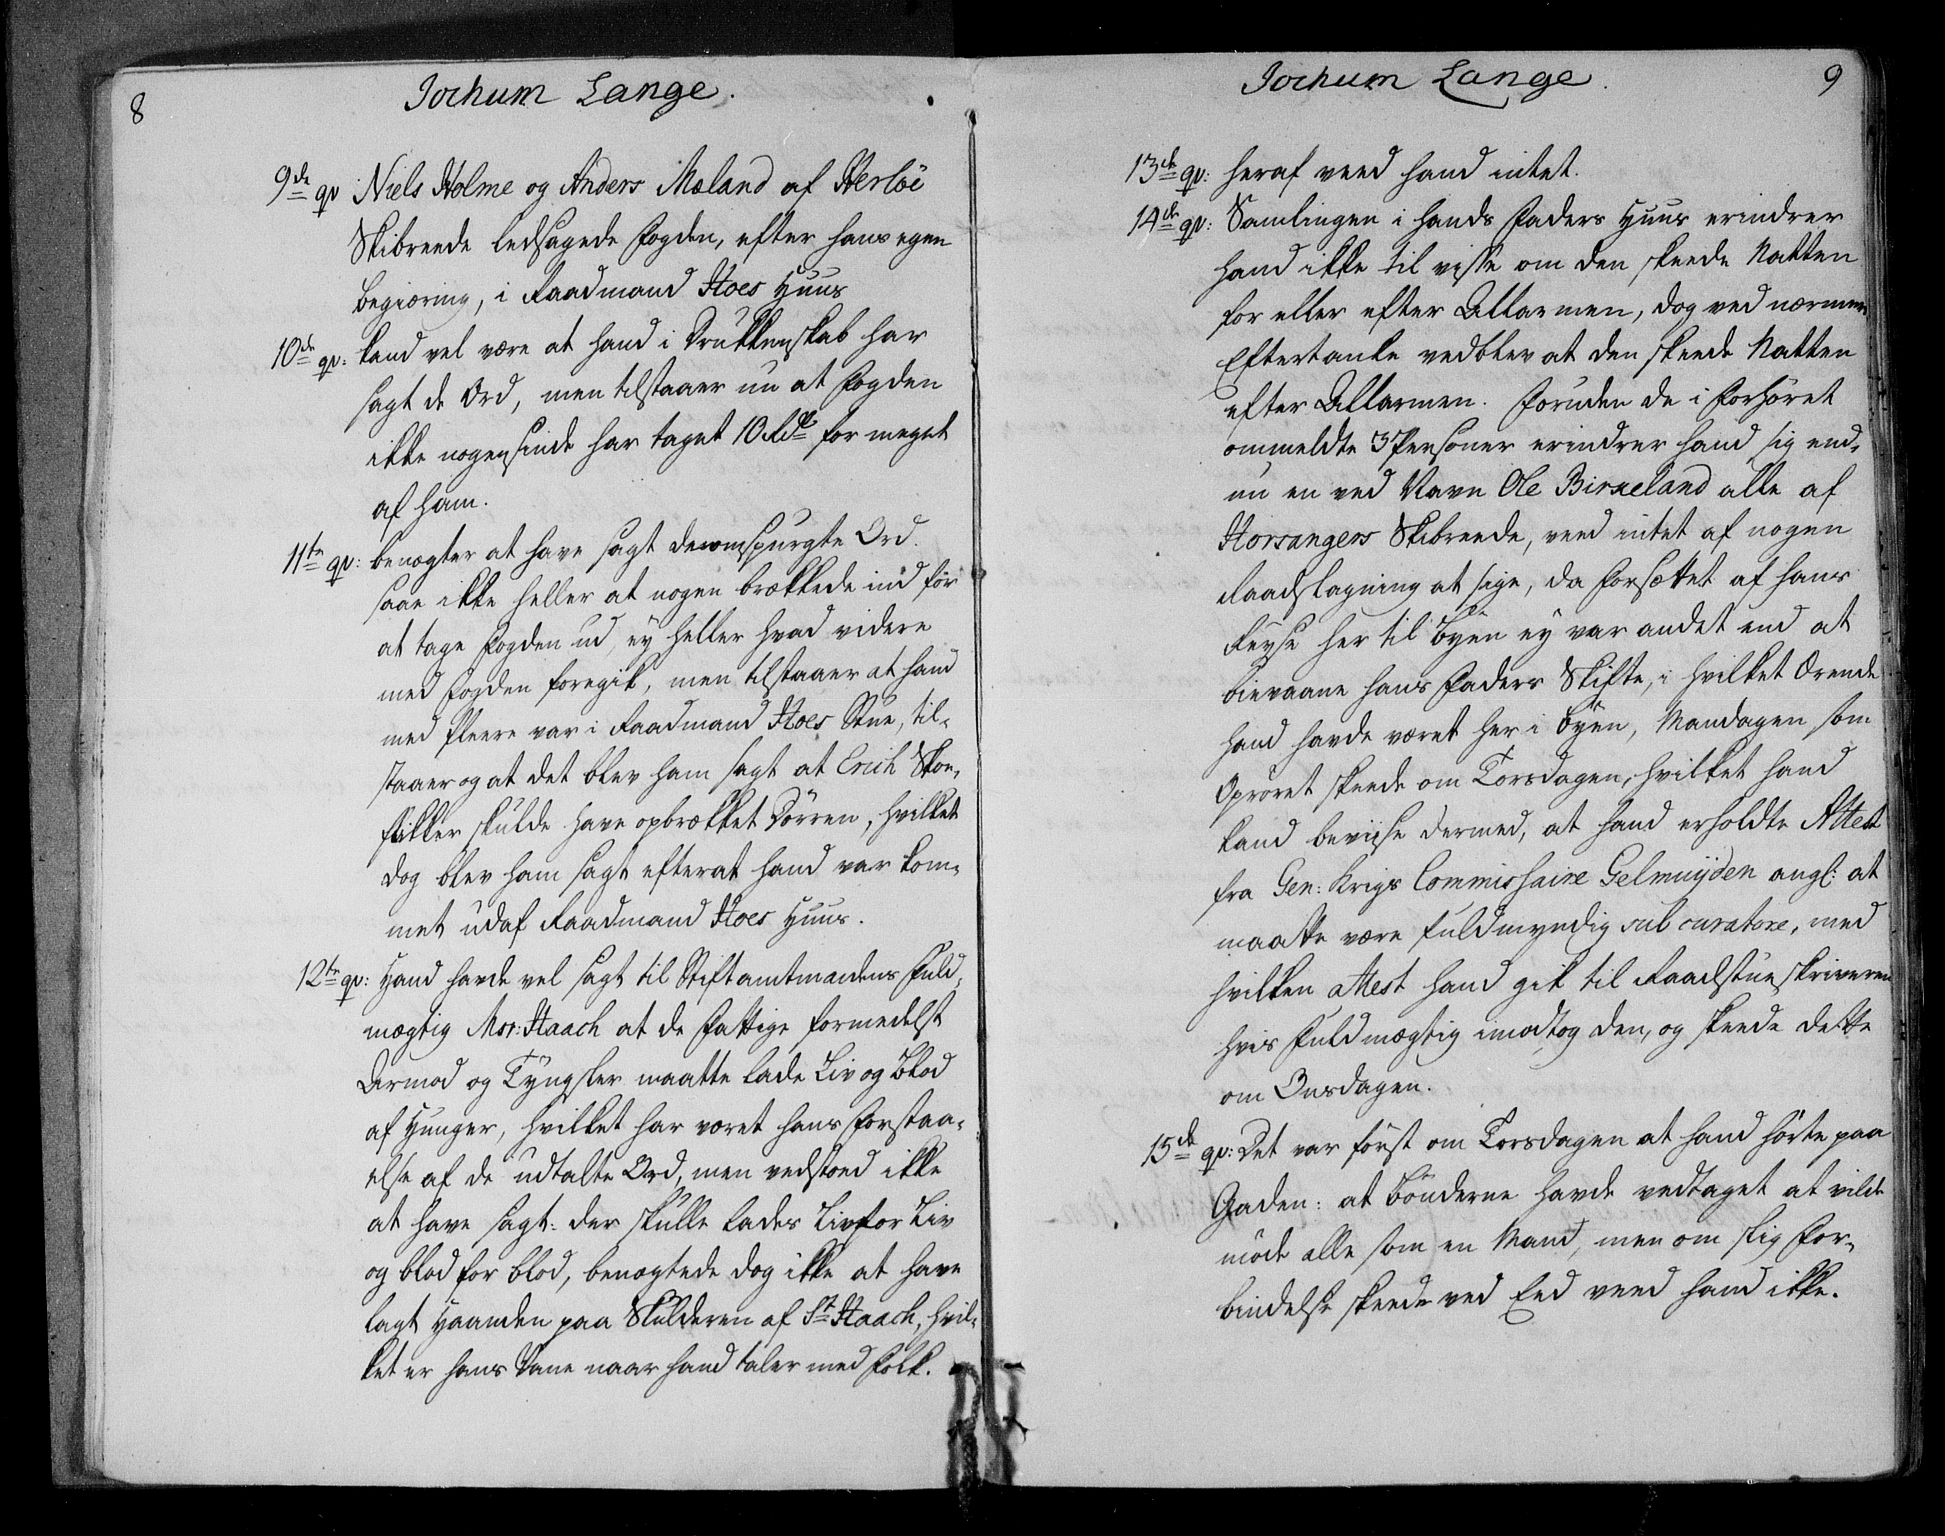 8
Jochum Lange.
9de qv Niels Holme og Anders Mæland af Herløe
Skibreede ledsagede Fogden, efter hans egen
begiæring, i Raadmand Hoes Huus
10de qv: kand vel være at hand i Drukkenskab har
sagt de Ord, men tilstaaer nu at Fogden
ikke nogensinde har taget 10 Rdlr for meget
af ham.
11te qv: benægter at have sagt de omspurgte Ord.
saae ikke heller at nogen brækkede ind før
at tage Fogden ud, ey heller hvad videre
med Fogden foregik, men tilstaaer at hand
med fleere var i Raadmand Hoes Stue, til-
staaer og at det blev ham sagt at Erich Skoe-
flikker skulde have opbrækket Dörren, hvilket
dog blev ham sagt efterat hand var kom-
met ud af Raadmand Hoes Huus.
12te qv: Hand havde vel sagt til Stiftamtmandens Fuld-
mægtig Mor: Haach at de Fattige formedelst
Armod og Tyngsler maatte lade Liv og Blod
af Hunger, hvilket har været hans Forstaa-
else af de udtalte Ord, men vedstoed ikke
at have sagt: der skulle lades Liv for Liv
og blod for blod, benægtede dog ikke at have
lagt Haanden paa Skulderen af Sr Haach, hvil-
ket er hans Vane naar hand taler med Folk.
Jochum Lange.
9
13de qv: heraf veed hand intet.
14de qv: Samlingen i hands Faders Huus erindrer
hand ikke til visse om den skeede Natten
for eller efter Allarmen, dog ved nærmere
Eftertanke vedblev at den skeede Natten
efter Allarmen. Foruden de i Forhöret
ommeldte 3 Personer erindrer hand sig end-
nu en ved Navn Ole Birkeland alle af
Horsangers Skibreede, veed intet af nogen
Raadslagning at sige, da Forsættet af hans
Reyse her til Byen ey var andet end at
bievaane hans Faders Skifte, i hvilket Ærende
hand havde været her i Byen, Mandagen som
Oprøret skeede om Torsdagen, hvilket hand
kand beviise dermed, at hand erholdte Attest
fra Gen: Krigs Commissaire Gelmuijden angl: at
maatte være fuldmyndig sub curatore, med
hvilken Attest hand gik til Raadstueskriveren
hvis Fuldmægtig imodtog den, og skeede dette
om Onsdagen.
15de qv: Det var först om Torsdagen at hand hörte paa
Gaden: at Bönderne havde vedtaget at vilde
møde alle som en Mand, men om slig For-
bindelse skeede ved Eed veed hand ikke.